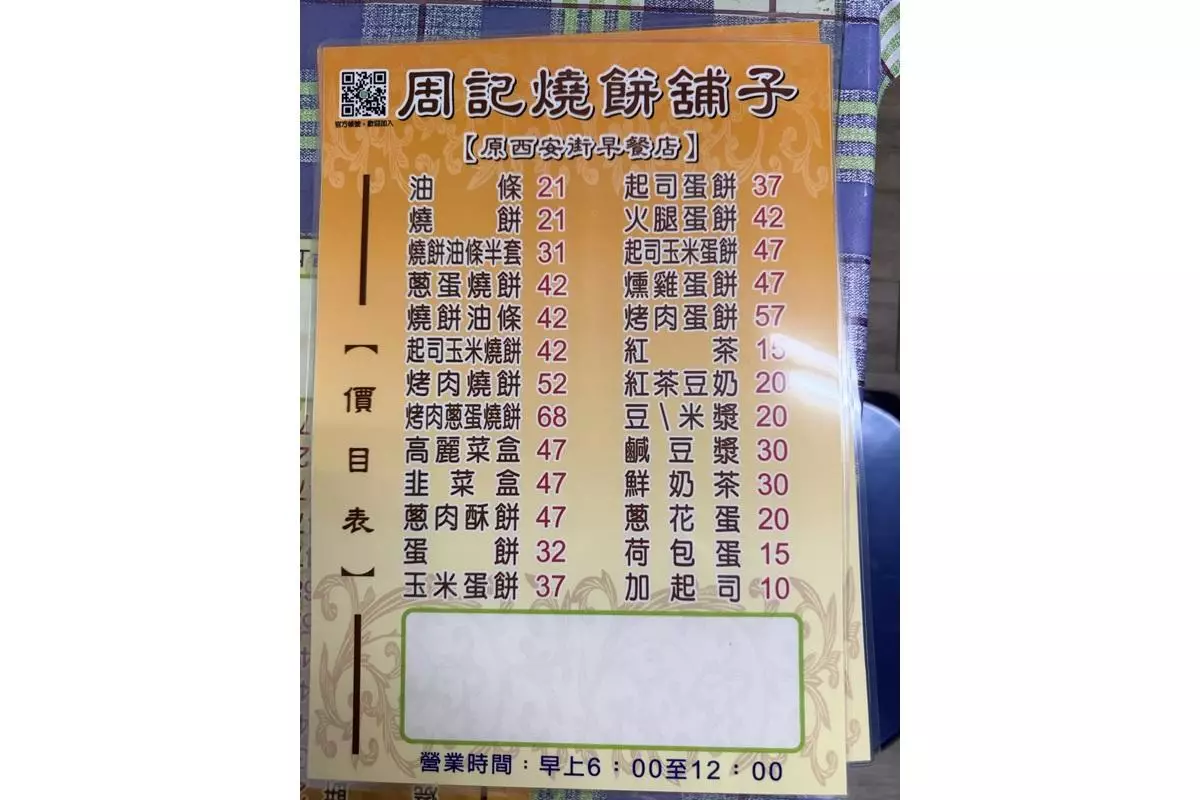 周記燒餅舖子
官方帳號，歡迎加入
【原西安街早餐店】
【價目表】
油條 21
燒餅 21
燒餅油條半套 31
蔥蛋燒餅 42
燒餅油條 42
起司玉米燒餅 42
烤肉燒餅 52
烤肉蔥蛋燒餅 68
高麗菜盒 47
韭菜盒 47
蔥肉酥餅 47
蛋餅 32
玉米蛋餅 37
起司蛋餅 37
火腿蛋餅 42
起司玉米蛋餅 47
燻雞蛋餅 47
烤肉蛋餅 57
紅茶 15
紅茶豆奶 20
豆\米漿 20
鹹豆漿 30
鮮奶茶 30
蔥花蛋 20
荷包蛋 15
加起司 10
營業時間：早上6：00至12：00